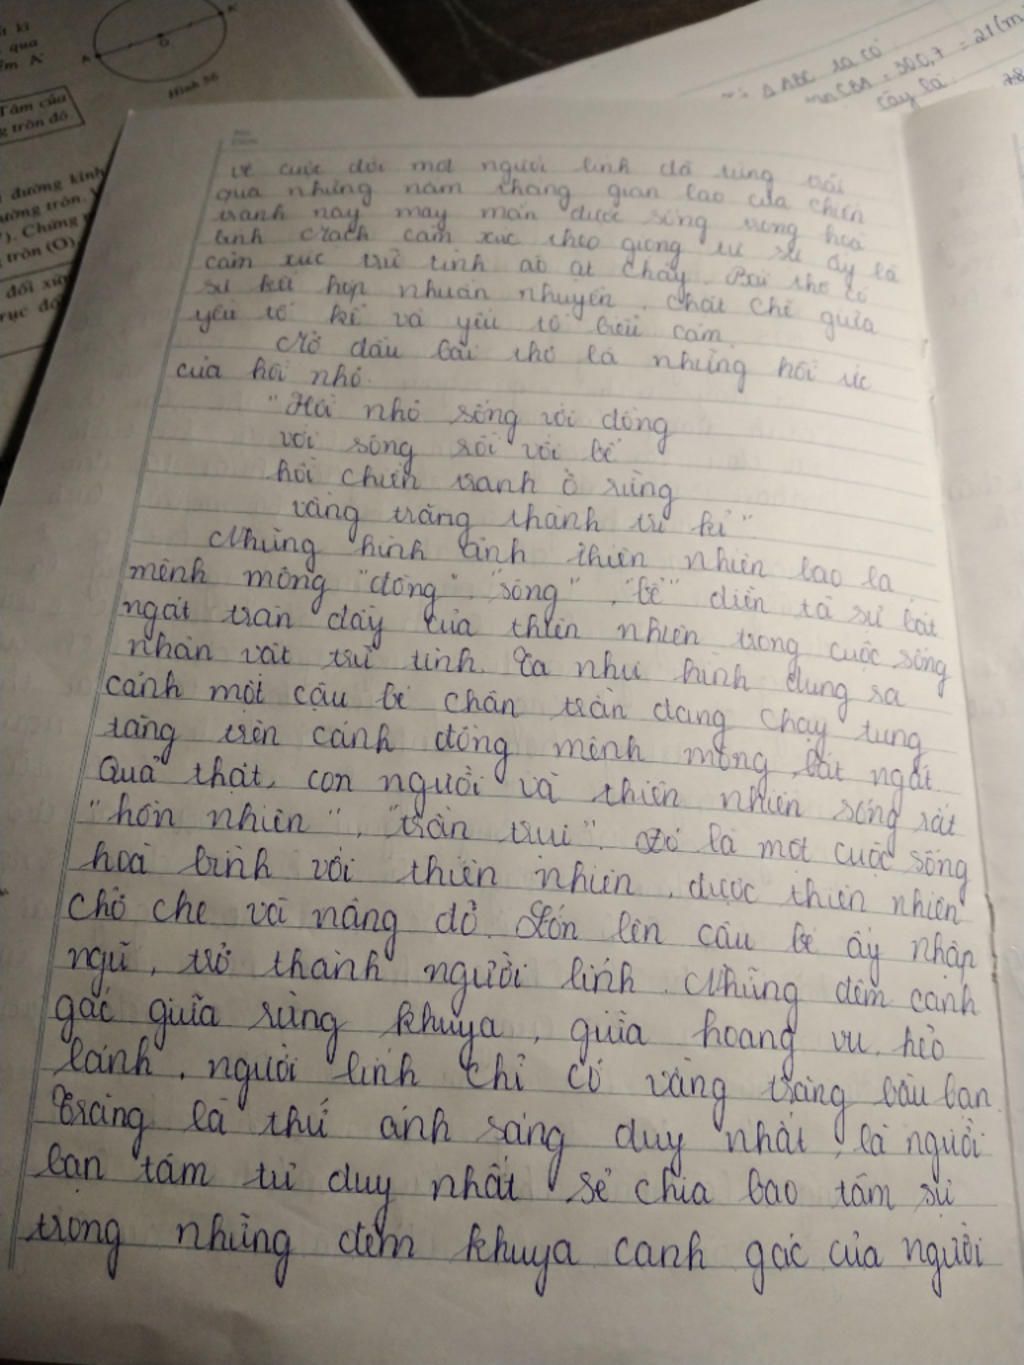 t kì
qua
m A'
Tâm của
g tròn đó.
đường kính
ường tròn.
). Chứng
tròn (O)
đối xứng
rục đối
Hình 56
A
O
ΔABC ta có
= 300,7 = 21(m
cây là
78
về cuộc đời một người lính đã từng trải
qua những năm tháng gian lao của chiến
tranh nay may mắn được sống trong hoà
bình. Mạch cảm xúc theo giọng tự sự ấy là
cảm xúc trữ tình ào ạt chảy. Bài thơ có
sự kết hợp nhuần nhuyễn, chặt chẽ giữa
yếu tố kể và yếu tố biểu cảm.
Mở đầu bài thơ là những hồi ức
của hồi nhỏ.
"Hồi nhỏ sống với đồng
với sông rồi với bể
hồi chiến tranh ở rừng
vầng trăng thành tri kỉ"
Những hình ảnh thiên nhiên bao la,
mênh mông "đồng", "sông", "bể" diễn tả sự bát
ngát tràn đầy của thiên nhiên trong cuộc sống
nhân vật trữ tình. Ta như hình dung ra
cảnh một cậu bé chân trần đang chạy tung
tăng trên cánh đồng mênh mông, bát ngát.
Quả thật, con người và thiên nhiên sống rất
"hồn nhiên", "trần trụi". Đó là một cuộc sống
hoà bình với thiên nhiên, được thiên nhiên
chở che và nâng đỡ. Lớn lên cậu bé ấy nhập
ngũ, trở thành người lính. Những đêm canh
gác giữa rừng khuya, giữa hoang vu, hẻo
lánh, người lính chỉ có vầng trăng bầu bạn.
Trăng là thứ ánh sáng duy nhất, là người
bạn tâm tư duy nhất sẻ chia bao tâm sự
trong những đêm khuya canh gác của người